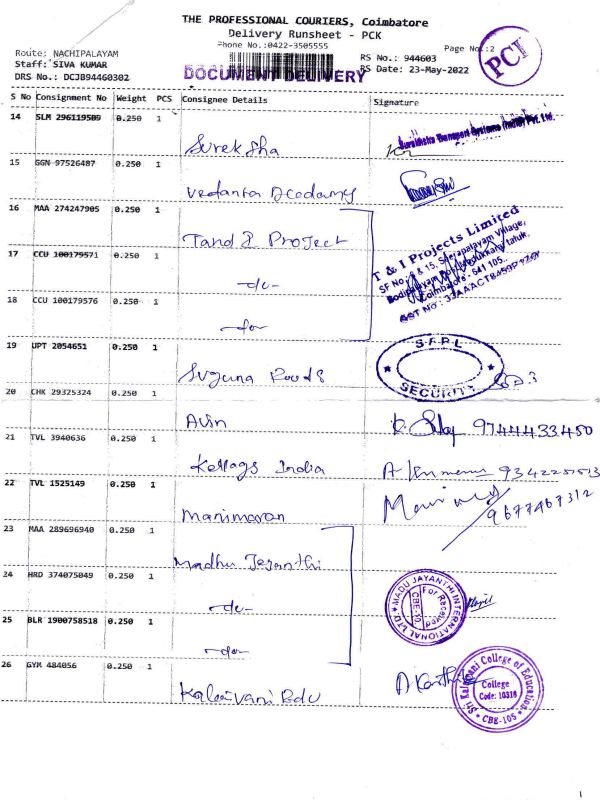 THE PROFESSIONAL COURIERS, Coimbatore
Delivery Runsheet - PCK
Phone No.:0422-3505555
Page No.:2
PCI
Route: NACHIPALAYAM
Staff: SIVA KUMAR
DRS No.: DCJB94460302
DOCUMENT DELIVERY
RS No.: 944603
RS Date: 23-May-2022
S No Consignment No Weight PCS Consignee Details Signature
14 SLM 296119509 0.250 1 Sureksha
Transport Systems (India) Pvt. Ltd.
15 GGN 97526487 0.250 1 Vedanta Acadamy
16 MAA 274247905 0.250 1 Tand I Project
T & I Projects Limited
17 CCU 100179571 0.250 1 -do-
18 CCU 100179576 0.250 1 -do-
19 UPT 2054651 0.250 1 Suguna Foods
S.F.P.L
SECURITY
20 CHK 29325324 0.250 1 Avin 9744433450
21 TVL 3940636 0.250 1 Kellags India
22 TVL 1525149 0.250 1 Manimaran 9677467312
23 MAA 289696940 0.250 1 Madhu Jeyanthi
24 HRD 374075049 0.250 1 -do-
MADU JAYANTHI INTERNATIONAL LTD.
For Received
CBE-10
25 BLR 1900758518 0.250 1 -do-
26 GYM 484056 0.250 1 Kalaivani Edu
Sri Kalaivani College of Education
College
Code: 10318
CBE-105
1